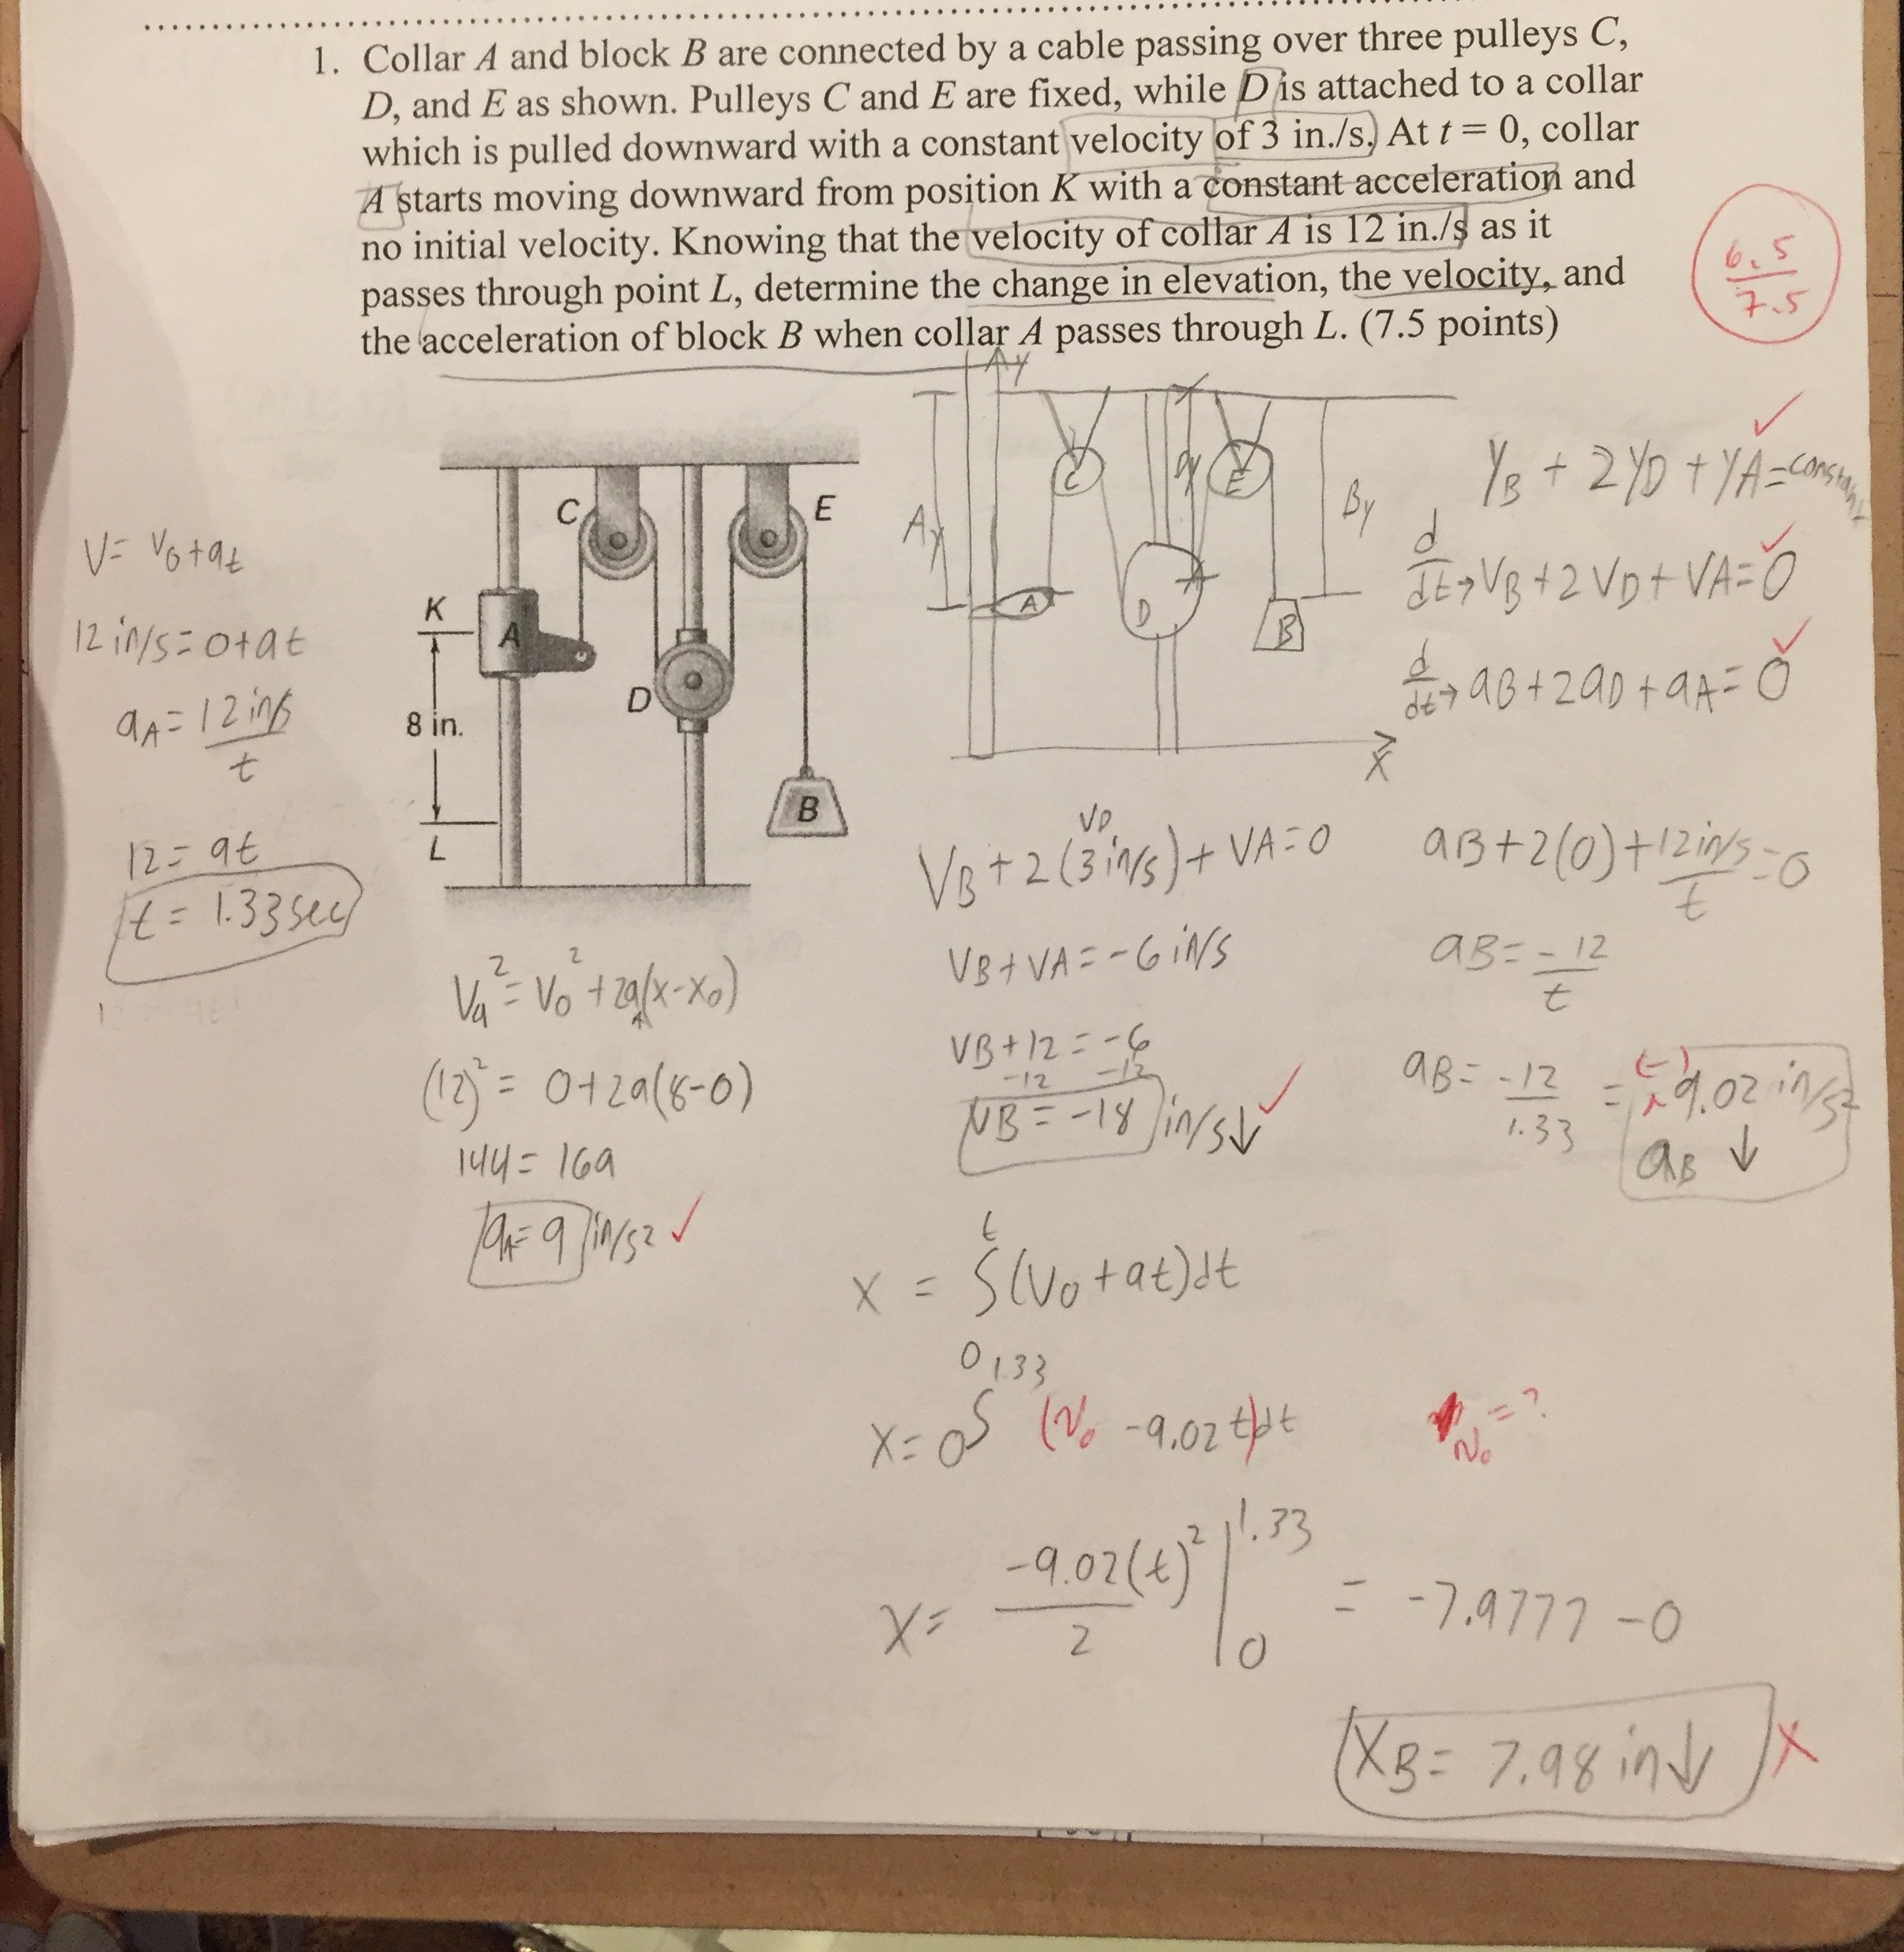 1. Collar A and block B are connected by a cable passing over three pulleys C,
D, and E as shown. Pulleys C and E are fixed, while D is attached to a collar
which is pulled downward with a constant velocity of 3 in./s. At t = 0, collar
A starts moving downward from position K with a constant acceleration and
no initial velocity. Knowing that the velocity of collar A is 12 in./s as it
passes through point L, determine the change in elevation, the velocity, and
the acceleration of block B when collar A passes through L. (7.5 points)
6.5
7.5
V= V0+at
12 in/s=0+at
aA=12in/s
t
12= at
t= 1.33sec
C
E
K
A
8 in.
D
L
B
Ay
Ay
C
Dy
E
By
A
D
B
X
YB + 2YD + YA=constant
d
dt→VB+2VD+VA=0
d
dt→aB+2aD+aA=0
Va²=V0²+2a(x-x0)
A
(12)²= 0+2a(8-0)
144= 16a
aA=9 in/s2
VD
VB+2(3in/s)+VA=0
VB+VA=-6in/s
VB+12=-6
-12 -12
VB=-18 in/s↓
aB+2(0)+12in/s=0
t
aB=-12
t
aB= -12 = (-) 9.02 in/s2
1.33
aB ↓
t
X = ∫(V0+at)dt
0
1.33
X=0∫ (V0 -9.02t)dt
V0=?
X= -9.02(t)²|1.33 = -7.9777-0
2 0
XB= 7.98in↓ X